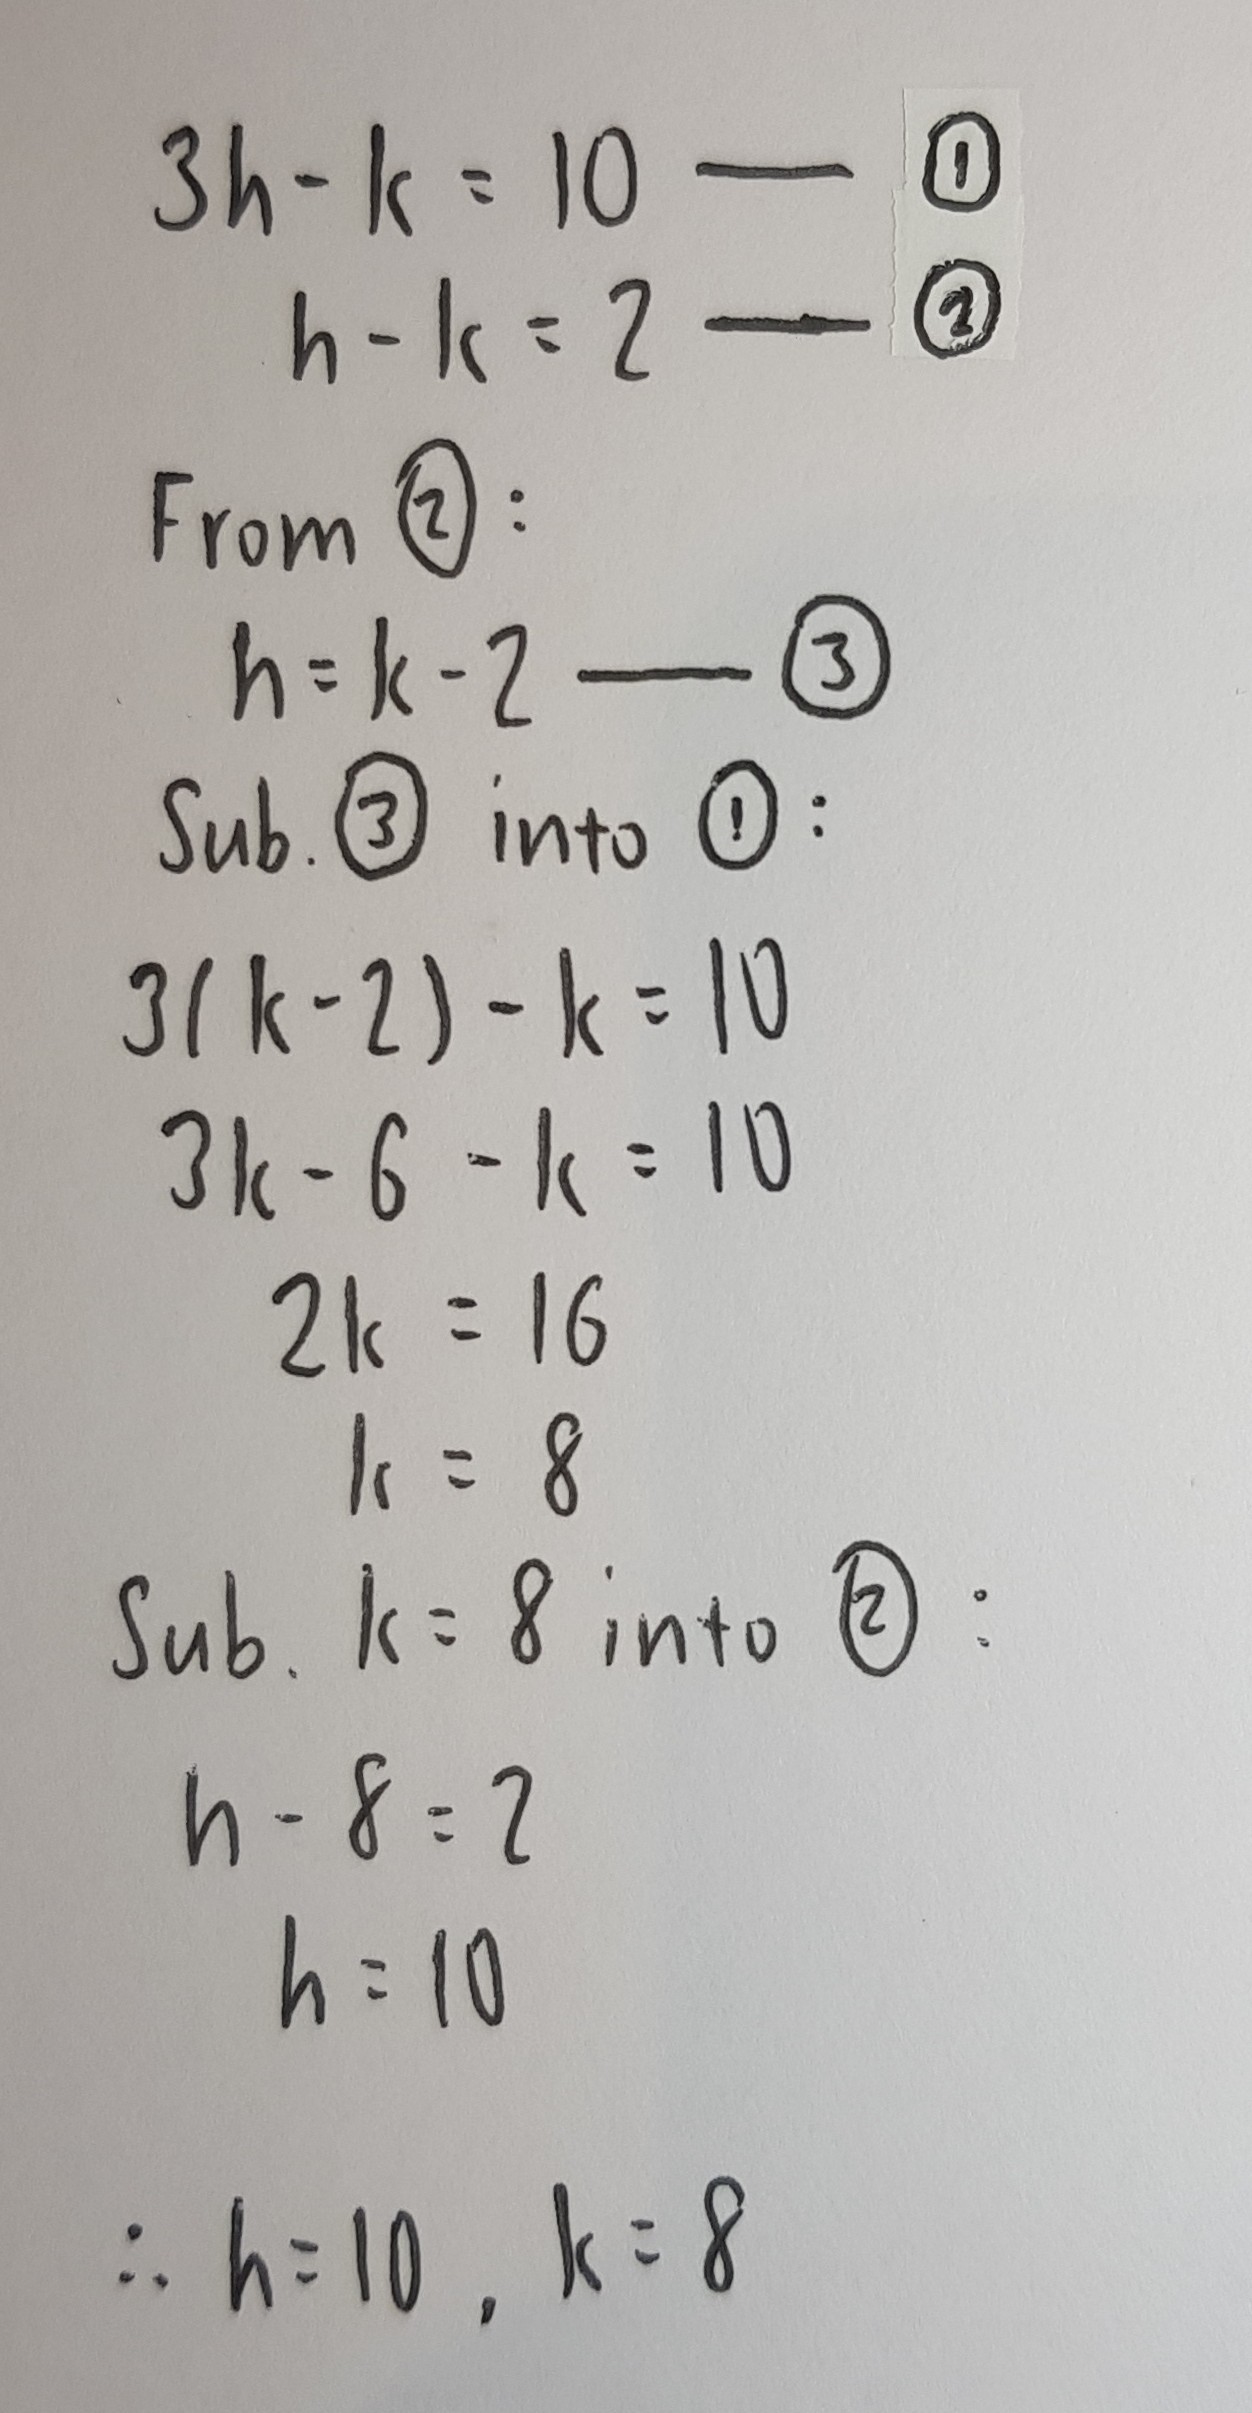 3h - k = 10 — ①
h - k = 2 — ②
From ②:
h = k - 2 — ③
Sub. ③ into ①:
3(k - 2) - k = 10
3k - 6 - k = 10
2k = 16
k = 8
Sub. k = 8 into ②:
h - 8 = 2
h = 10
∴ h = 10, k = 8